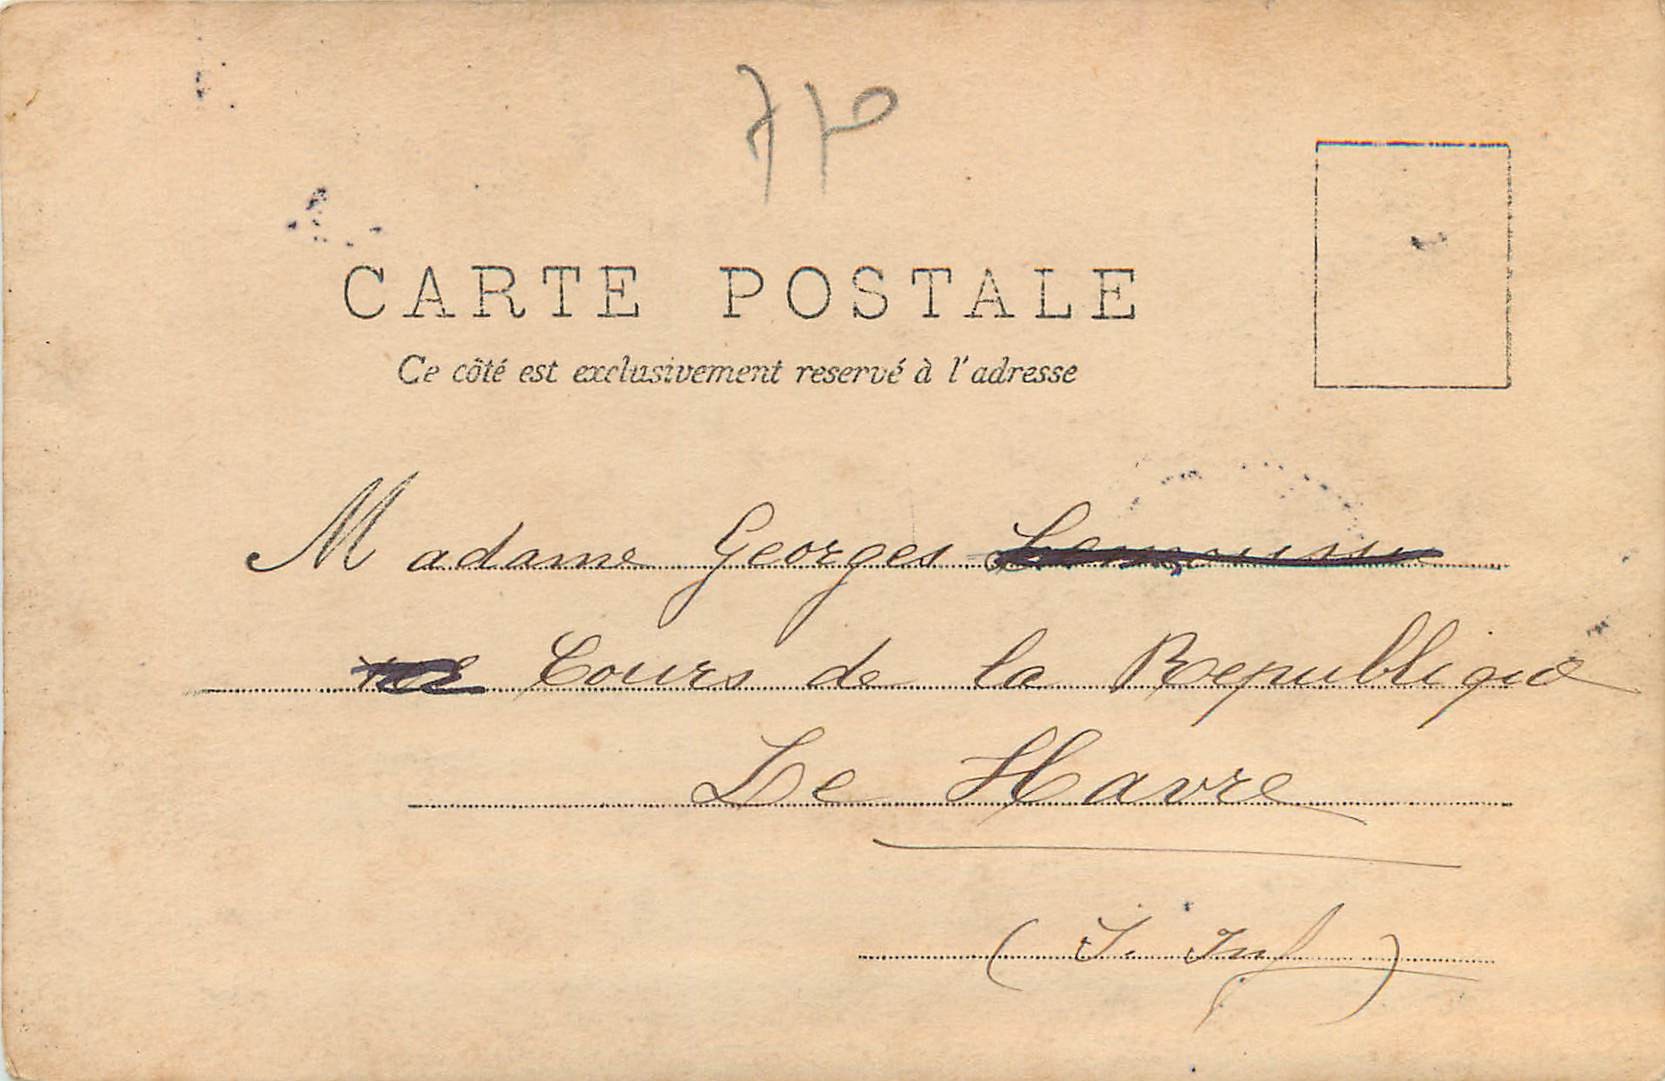 CARTE POSTALE
Ce côté est exclusivement reservé à l'adresse
Madame Georges
Cours de la Republique
Le Havre
(S. Inf)